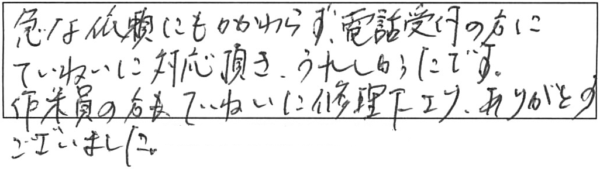 急な依頼にもかかわらず、電話受付の方に
ていねいに対応頂き、うれしかったです。
作業員の方も、ていねいに修理下さり、ありがとう
ございました。